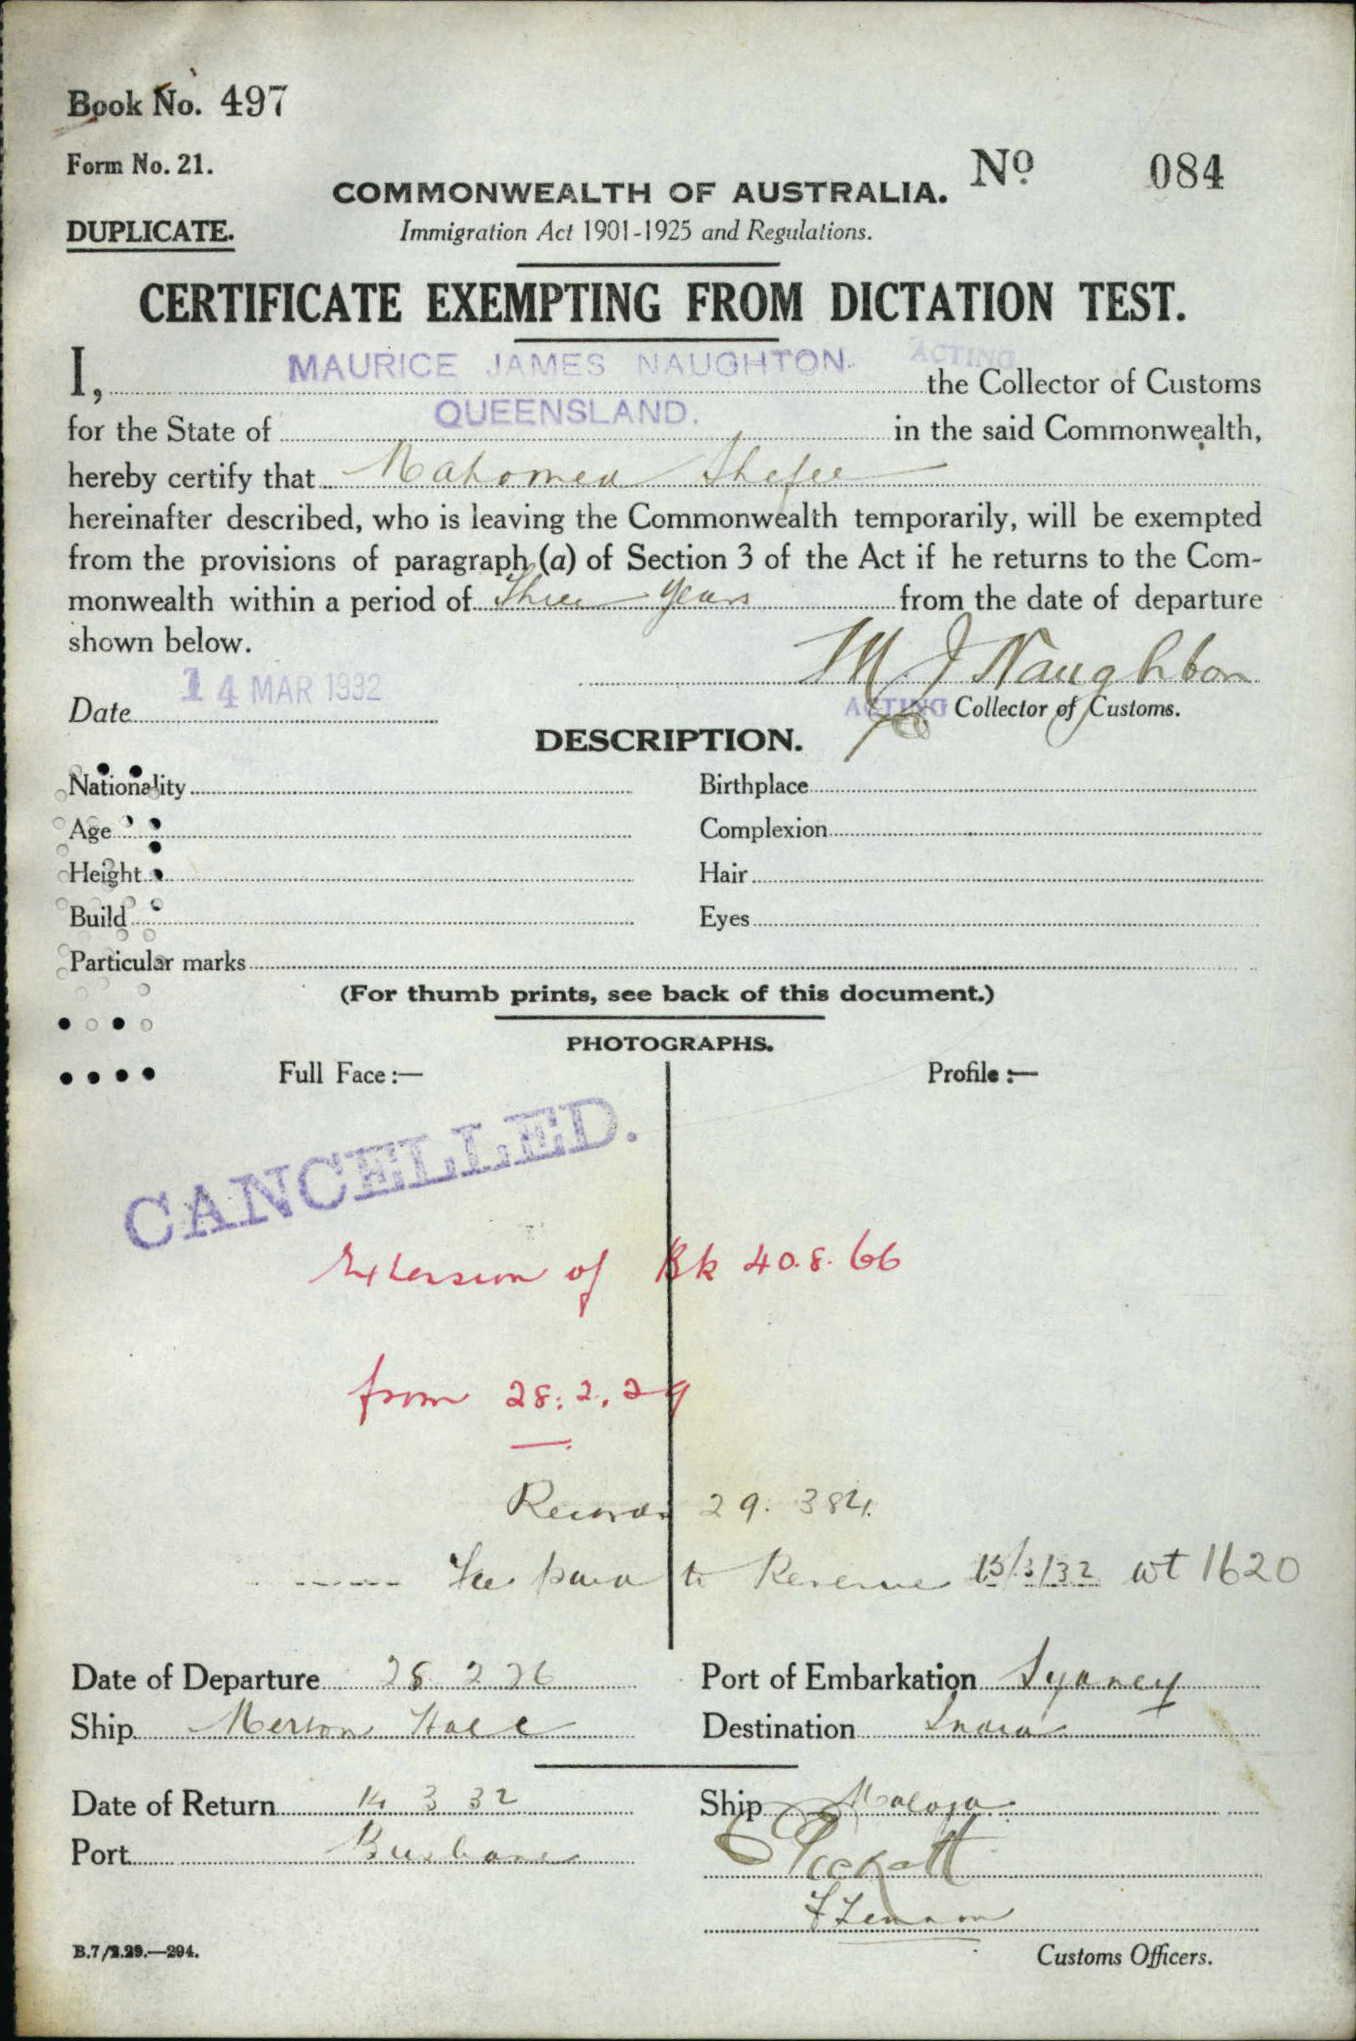 Book No. 497
Form No. 21.
Nº 084
COMMONWEALTH OF AUSTRALIA.
DUPLICATE.
Immigration Act 1901-1925 and Regulations.
CERTIFICATE EXEMPTING FROM DICTATION TEST.
I, MAURICE JAMES NAUGHTON. ACTING the Collector of Customs
for the State of QUEENSLAND. in the said Commonwealth,
hereby certify that Mahomed Shefee
hereinafter described, who is leaving the Commonwealth temporarily, will be exempted
from the provisions of paragraph (a) of Section 3 of the Act if he returns to the Com-
monwealth within a period of Three years from the date of departure
shown below.
M J Naughton
Date 14 MAR 1932
ACTING Collector of Customs.
DESCRIPTION.
Nationality Birthplace
Age Complexion
Height Hair
Build Eyes
Particular marks
(For thumb prints, see back of this document.)
PHOTOGRAPHS.
Full Face:— Profile:—
CANCELLED.
Extension of Bk 408.66
from 28.2.29
Records 29. 384.
Fee paid to Revenue 15/3/32 wt 1620
Date of Departure 28 2 26 Port of Embarkation Sydney
Ship Merton Hall Destination India
Date of Return 14 3 32 Ship Maloja
Port Brisbane
F Lennon
B.7/2.29.—294.
Customs Officers.